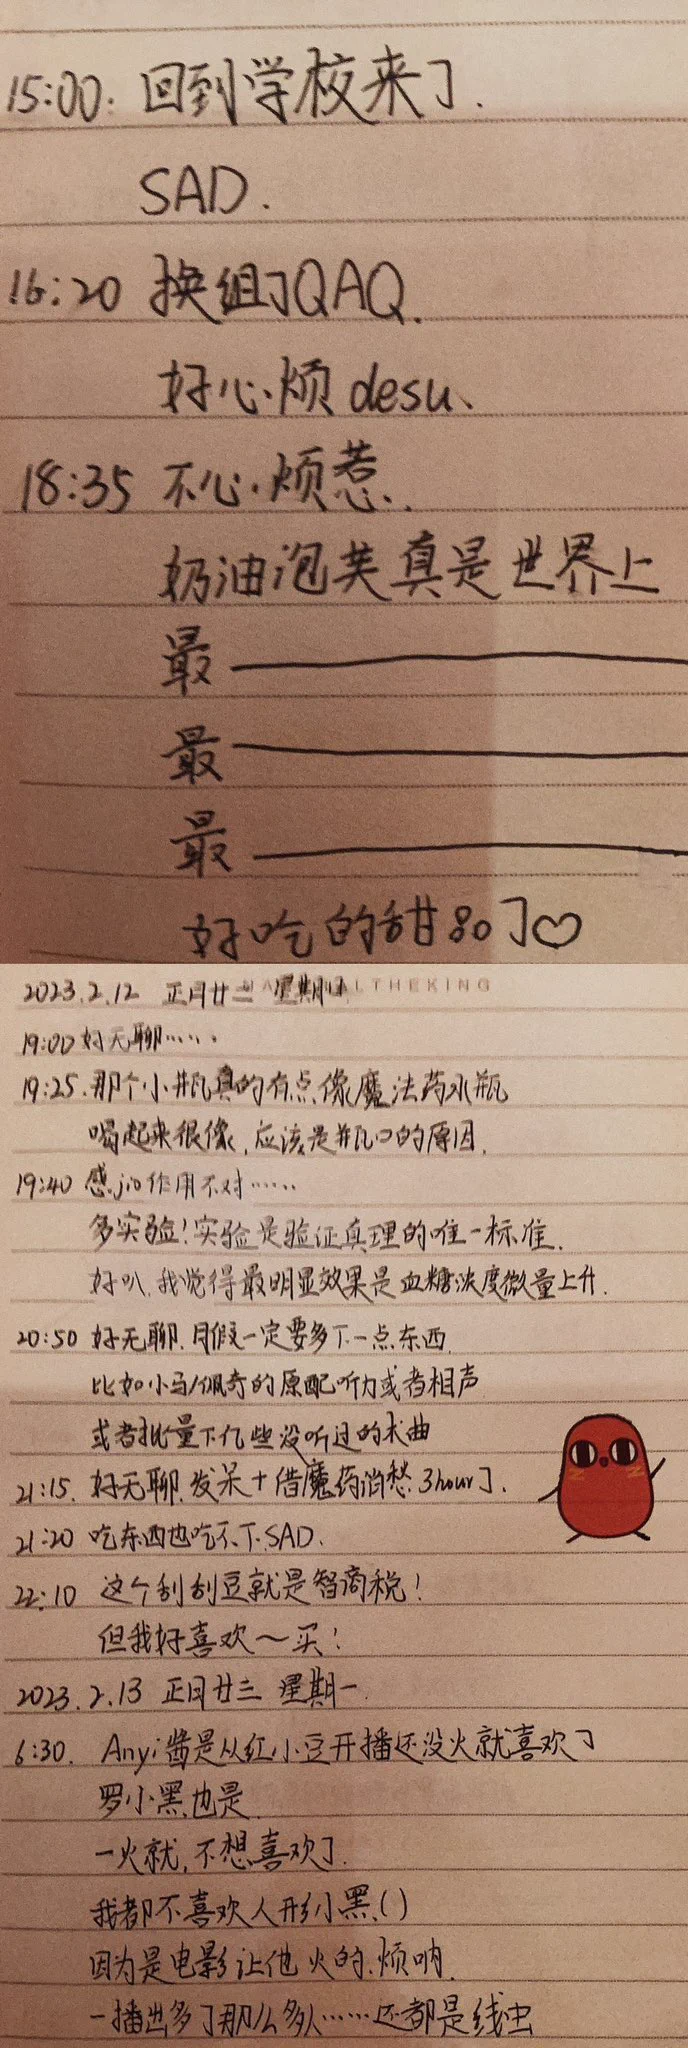 15:00: 回到学校来了.
SAD.
16:20 换组了QAQ.
好心烦 desu、
18:35 不心烦惹..
奶油泡芙真是世界上
最
最
最
好吃的甜品了♡
2023.2.12 正月廿二 星期日
THEKING
19:00 好无聊……
19:25. 那个小瓶真的有点像魔法药水瓶
喝起来很像, 应该是瓶口的原因.
19:40 感jio作用不对……
多实验! 实验是验证真理的唯一标准.
好叭, 我觉得最明显效果是血糖浓度微量上升.
20:50 好无聊. 月假一定要多下一点东西
比如小马/佩奇的原配听力或者相声
或者批量下亿些没听过的术曲
21:15. 好无聊. 发呆+借魔药消愁 3hour了.
21:20 吃东西也吃不下. SAD.
22:10 这个刮刮豆就是智商税!
但我好喜欢～买!
2023.2.13 正月廿三 星期一
6:30. Anyi酱是从红小豆开播还没火就喜欢了
罗小黑也是.
一火就, 不想喜欢了.
我都不喜欢人形小黑.()
因为是电影让他火的. 烦呐.
一播出多了那么多人……还都是线虫